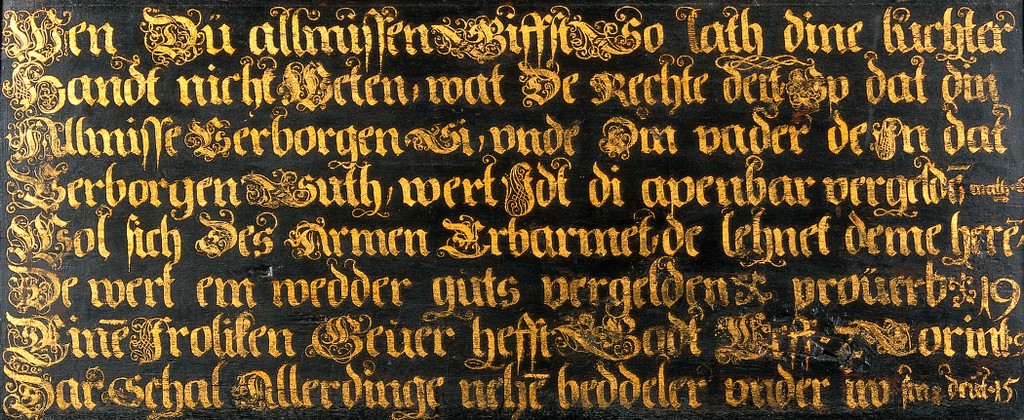 Wen Dü allmissen Giffst So lath dine luchter
Handt nicht Weten, wat De Rechte deit Up dat din
Allmisse Verborgen Si, vnde Din vader de In dat
Verborgen Süth, wert Idt di apenbar vergeldē math 6
Wol sich Des Armen Erbarmet, de lehnet deme herē
De wert em wedder guts vergelden prouerb 19
Einē froliken Geuer hefft Gadt Corint
Dar Schal Allerdinge nehn̄ beddeler vnder iw sin deut 15